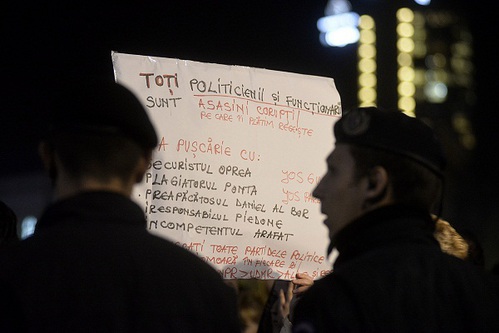 TOȚI POLITICIENII ȘI FUNCȚIONARII
SUNT ASASINI CORUPȚI!
PE CARE ÎI PLĂTIM REGEȘTE
A PUȘCĂRIE CU:
SECURISTUL OPREA
PLAGIATORUL PONTA
PREAPĂCĂTOSUL DANIEL AL BOR
IRESPONSABILUL PIEDONE
INCOMPETENTUL ARAFAT
YOS
YOS
TOATE PARTIDELE POLITICE